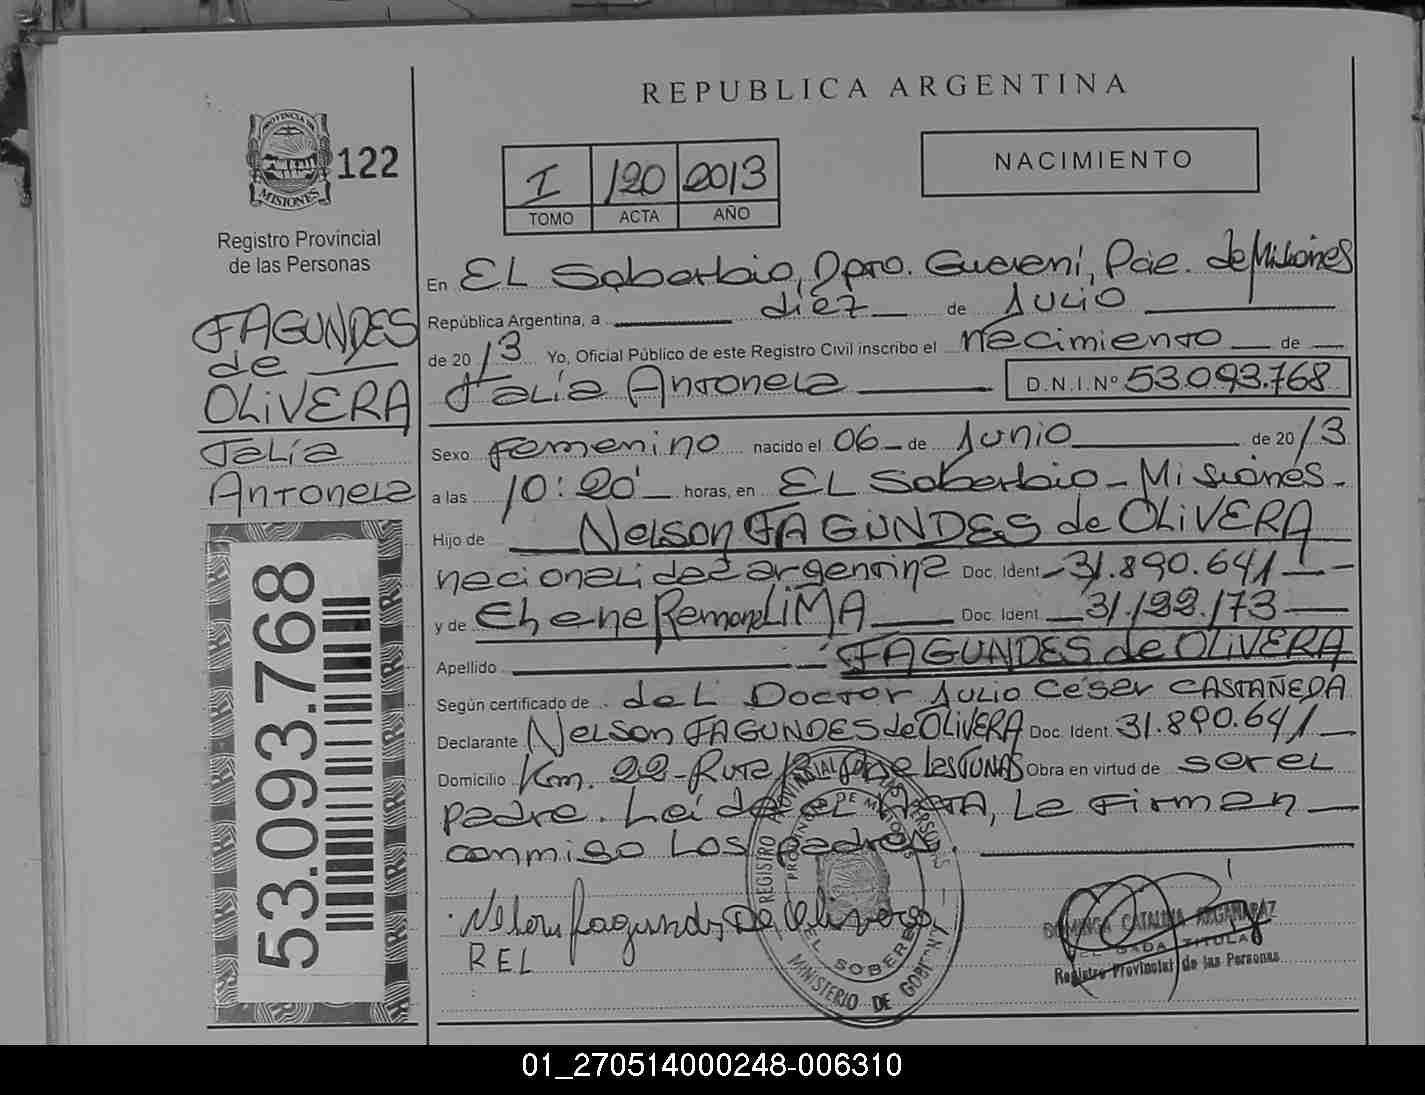 REPUBLICA ARGENTINA
PROVINCIA DE
MISIONES
122
Registro Provincial
de las Personas
I 120 2013
TOMO ACTA AÑO
NACIMIENTO
En EL Soberbio, Dpto. Guaraní, Pcia. de Misiones
República Argentina, a diez de Julio
de 2013 Yo, Oficial Público de este Registro Civil inscribo el nacimiento de
Jalía Antonela D.N.I.Nº 53.093.768
FAGUNDES
de
OLIVERA
Jalía
Antonela
53.093.768
Sexo femenino nacido el 06 de Junio de 2013
a las 10:20' horas, en EL Soberbio - Misiones -
Hijo de Nelson FAGUNDES de OLIVERA
nacionalidad argentina Doc. Ident. 31.890.641
y de Ramona LIMA Doc. Ident. 31.122.173
Apellido FAGUNDES de OLIVERA
Según certificado de del Doctor Julio César CASTAÑEDA
Declarante Nelson FAGUNDES de OLIVERA Doc. Ident. 31.890.641
Domicilio Km. 22 - Ruta Obra en virtud de ser el
padre. Leída el Acta, la firman
conmigo los padres.
Nelson Fagundes De Olivera
REL
REGISTRO PROVINCIAL DE LAS PERSONAS
PROVINCIA DE MISIONES
EL SOBERBIO
MINISTERIO DE GOBIERNO
DOMINGA CATALINA ARGAÑARAZ
DELEGADA TITULAR
Registro Provincial de las Personas
01_270514000248-006310